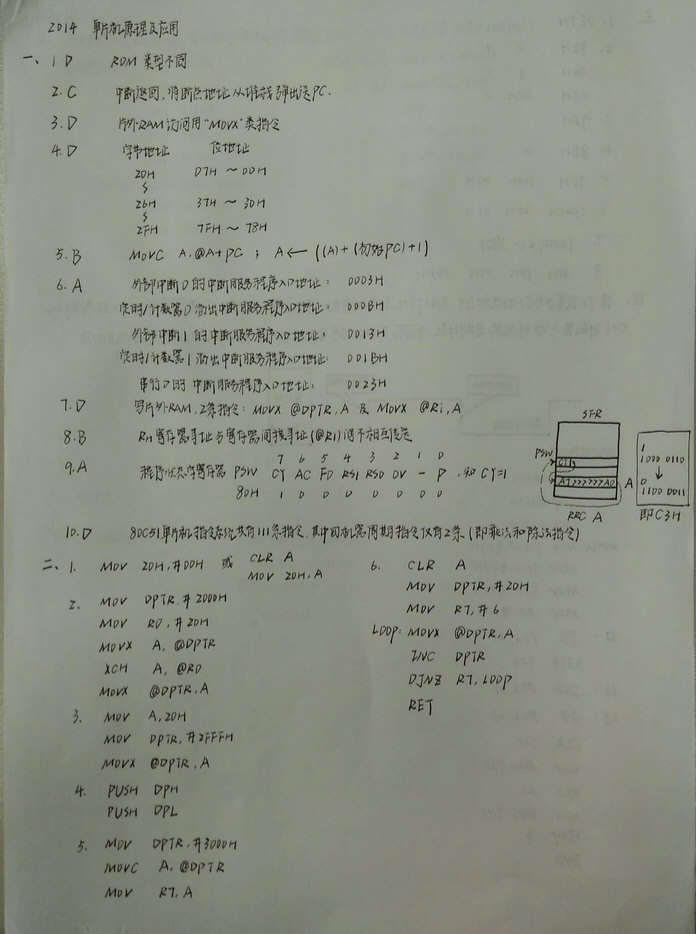 2014 单片机原理及应用
一、1.D ROM 类型不同
2.C 中断返回,将断点地址从堆栈弹出送PC.
3.D 片外RAM访问用"MOVX"类指令
4.D 字节地址 位地址
20H 07H ~ 00H
26H 37H ~ 30H
2FH 7FH ~ 78H
5.B MOVC A,@A+PC ; A ← ((A)+(初始PC)+1)
6.A 外部中断0的中断服务程序入口地址: 0003H
定时/计数器0溢出中断服务程序入口地址: 000BH
外部中断1的中断服务程序入口地址: 0013H
定时/计数器1溢出中断服务程序入口地址: 001BH
串行口的中断服务程序入口地址: 0023H
7.D 写片外RAM,2条指令: MOVX @DPTR,A 及 MOVX @Ri,A
8.B Rn寄存器寻址与寄存器间接寻址(@Ri)间不相互传送
9.A 程序状态字寄存器 PSW
7 6 5 4 3 2 1 0
CY AC F0 RS1 RS0 OV - P ,知CY=1
80H 1 0 0 0 0 0 0 0
SFR
PSW
CY
A7 A0 A
RRC A
1
1000 0110
↓
0
1100 0011
即C3H
10.D 80C51单片机指令系统共有111条指令,其中四机器周期指令仅有2条(即乘法和除法指令)
二、1. MOV 20H,#00H 或 CLR A
MOV 20H,A
2. MOV DPTR,#2000H
MOV R0,#20H
MOVX A,@DPTR
XCH A,@R0
MOVX @DPTR,A
3. MOV A,20H
MOV DPTR,#2FFFH
MOVX @DPTR,A
4. PUSH DPH
PUSH DPL
5. MOV DPTR,#3000H
MOVC A,@DPTR
MOV R7,A
6. CLR A
MOV DPTR,#20H
MOV R7,#6
LOOP: MOVX @DPTR,A
INC DPTR
DJNZ R7,LOOP
RET